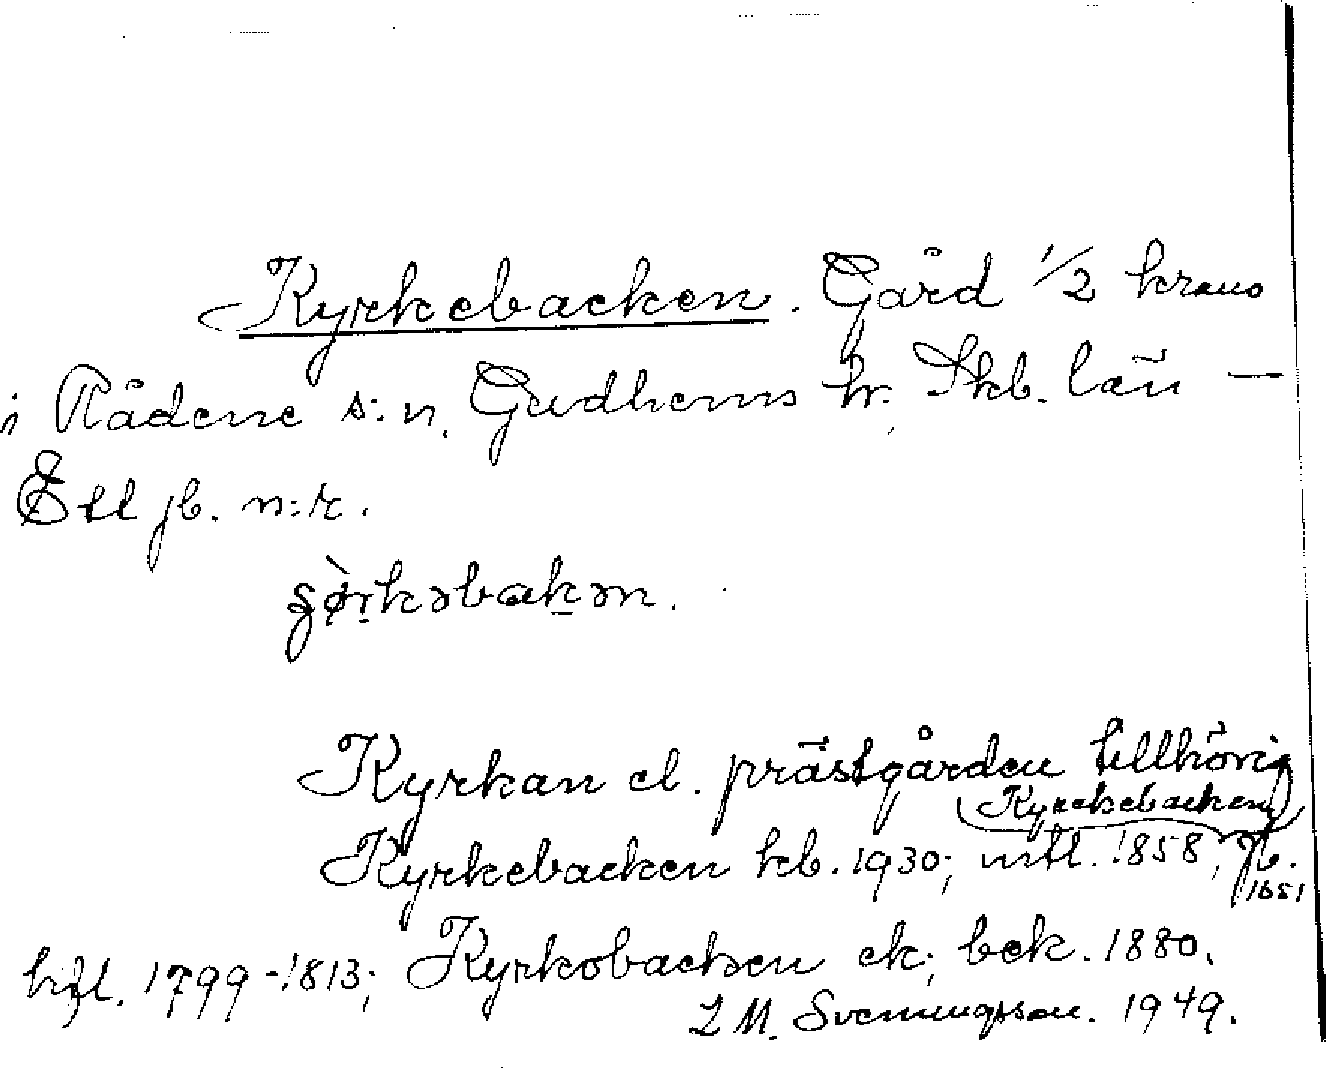 Kyrkebacken. Gård 1/2 krono
i Rådene s:n. Gudhems hr. Skb. län —
Ett jb. n:r.
Kyrkan el. prästgården tillhörig
Kyrckebacken
Kyrkebacken kb. 1930; mtl. 1858; jb. 1651
hfl. 1799-1813; Kyrkobacken ek; bek. 1880.
Svenungsson. 1949.